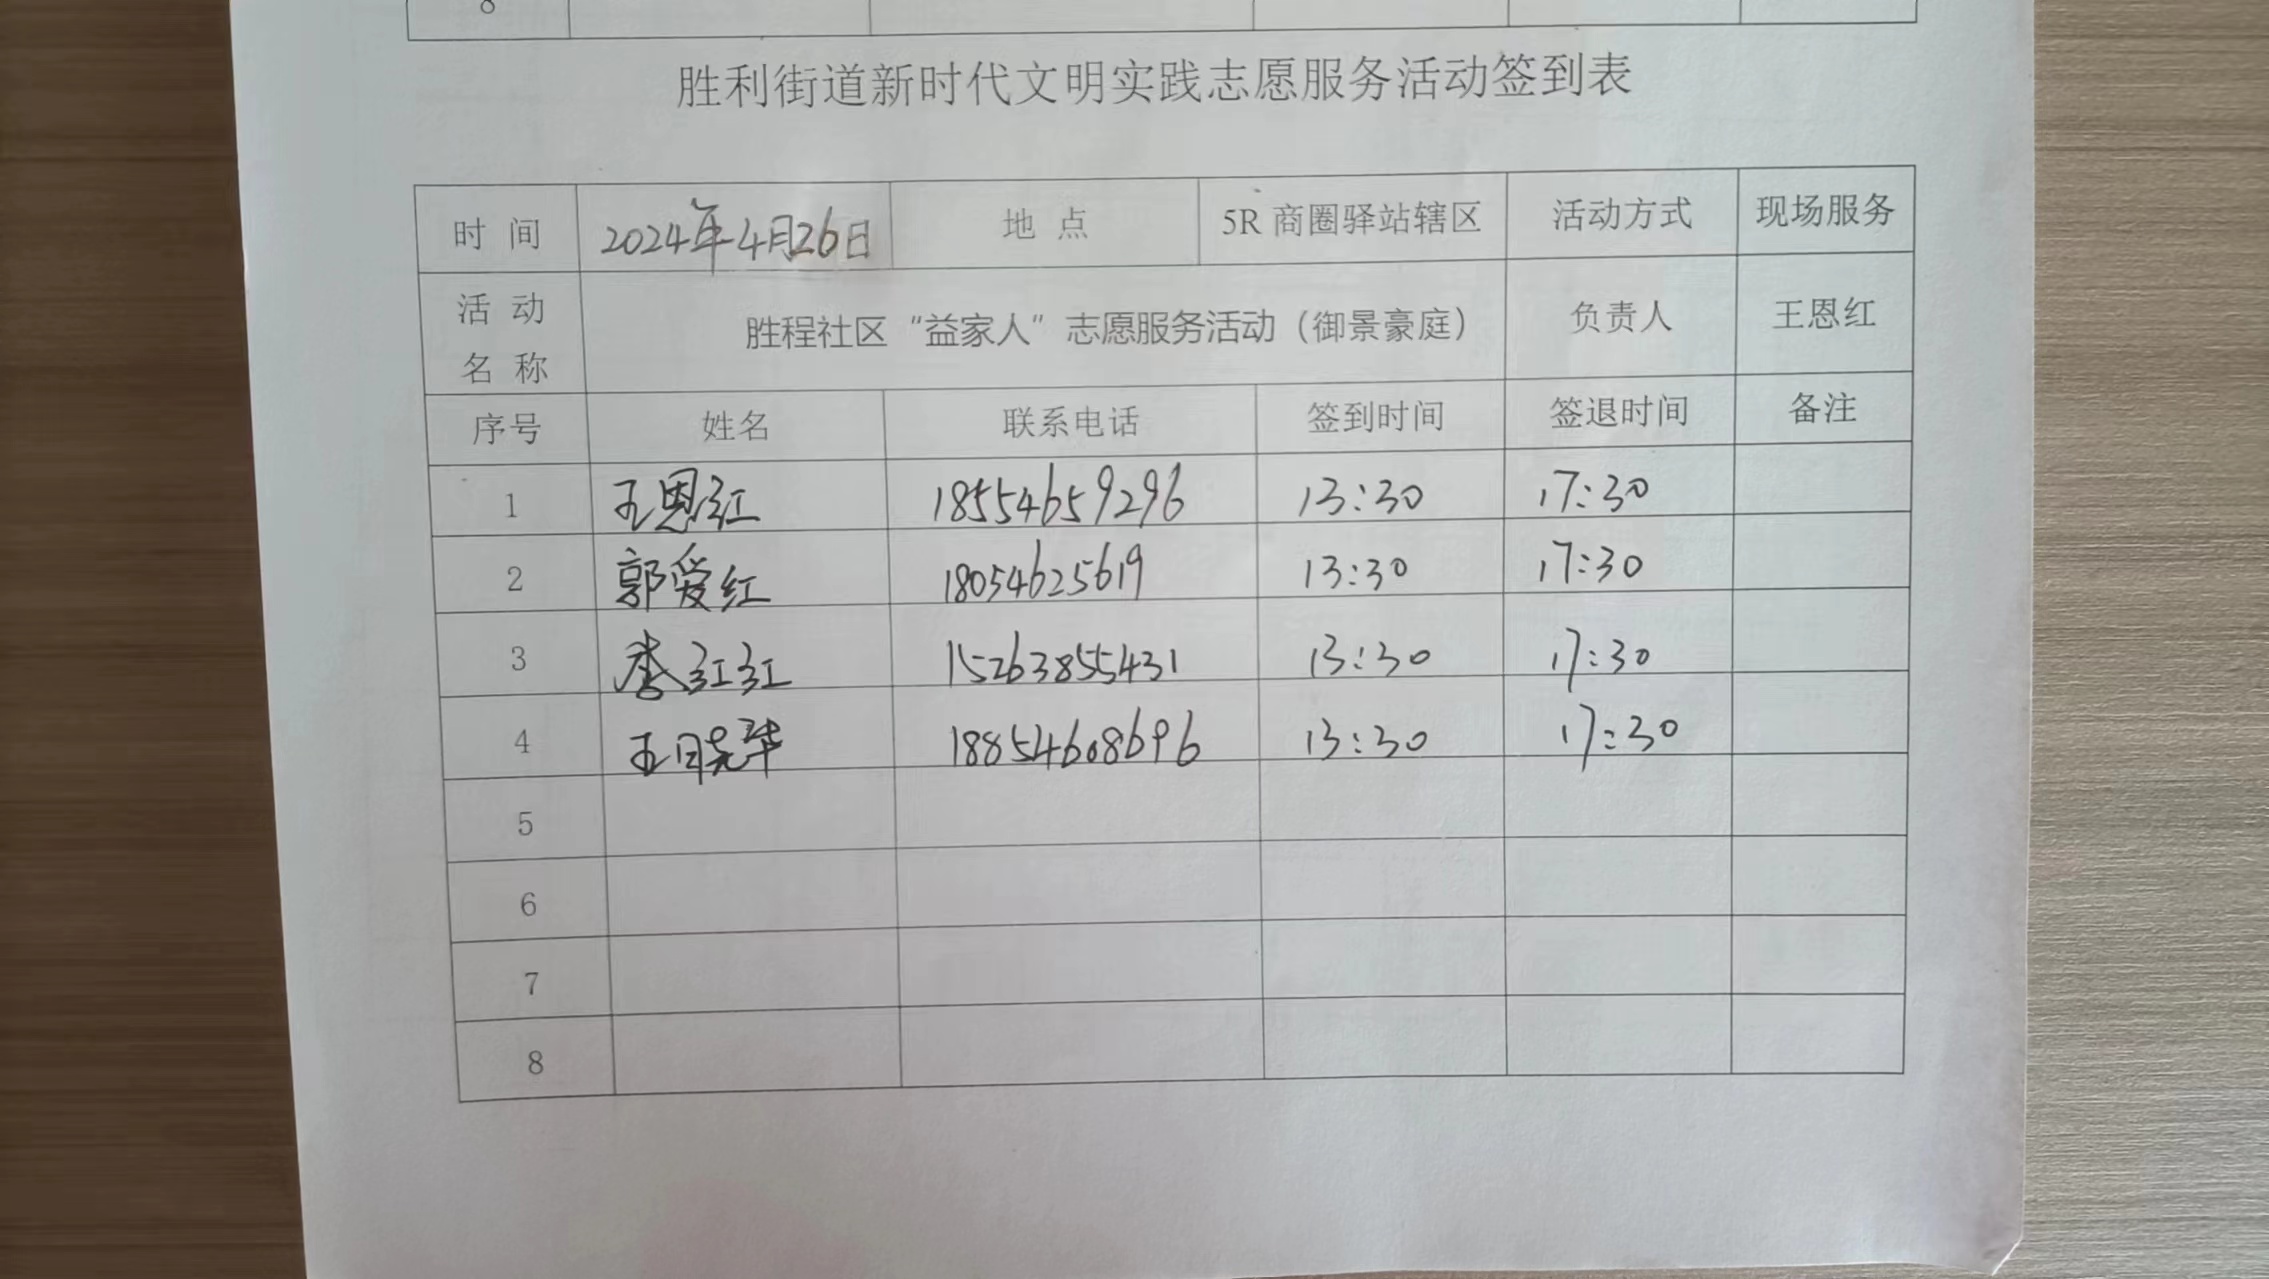 8
胜利街道新时代文明实践志愿服务活动签到表
时 间 2024年4月26日 地 点 5R 商圈驿站辖区 活动方式 现场服务
活 动
名 称 胜程社区“益家人”志愿服务活动（御景豪庭） 负责人 王恩红
序号 姓名 联系电话 签到时间 签退时间 备注
1 王恩红 18554659296 13:30 17:30
2 郭爱红 18054625619 13:30 17:30
3 李红红 15263855431 13:30 17:30
4 王晓华 18854608696 13:30 17:30
5
6
7
8